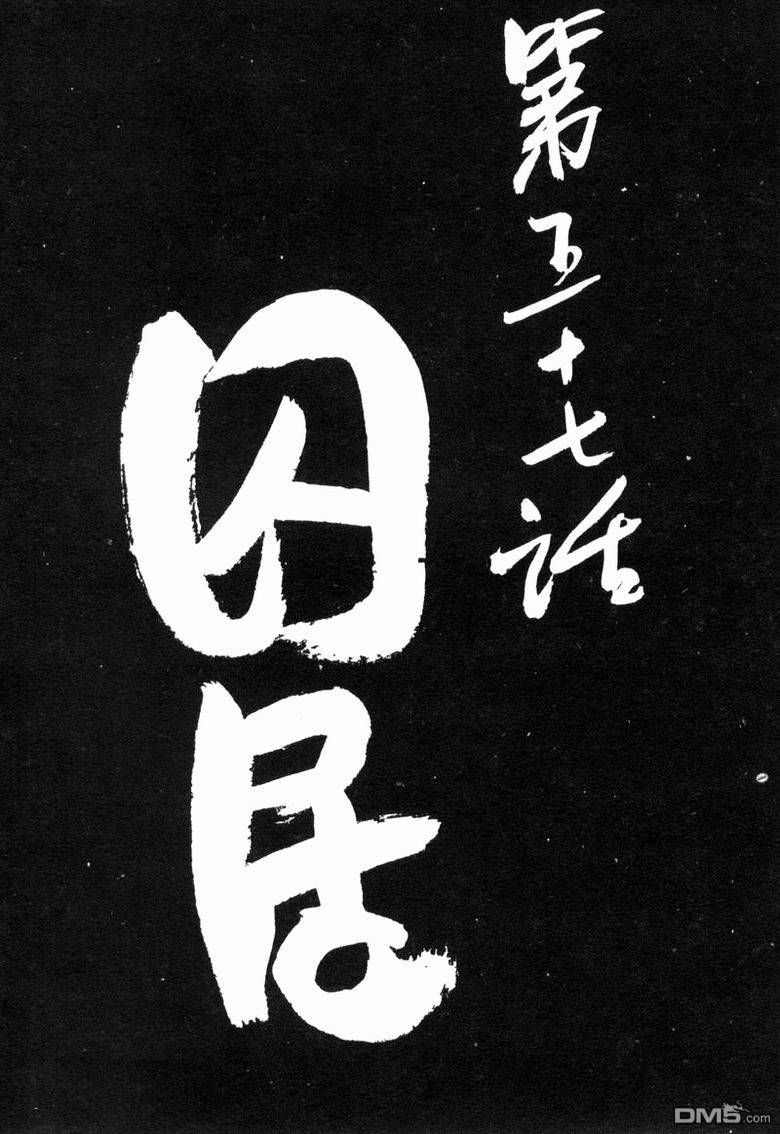 第五十七話
囚居
DM5.com